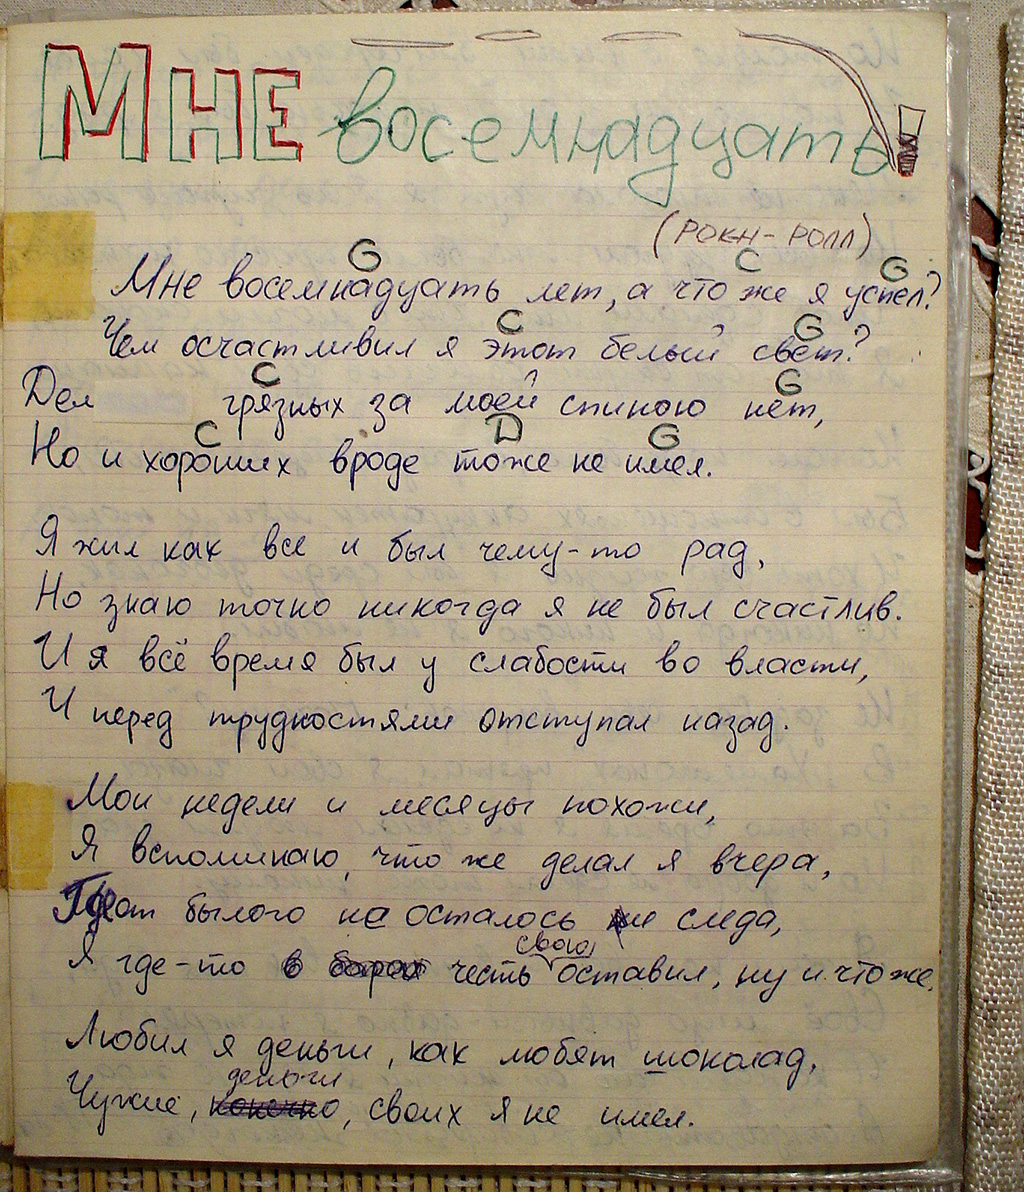 Мне восемнадцать
(РОКН-РОЛЛ)
G C G
Мне восемнадцать лет, а что же я успел?
C G
Чем осчастливил я этот белый свет?
C G
Дел грязных за моей спиною нет,
C D G
Но и хороших вроде тоже не имел.
Я жил как все и был чему-то рад,
Но знаю точно никогда я не был счастлив.
И я всё время был у слабости во власти,
И перед трудностями отступал назад.
Мои недели и месяцы похожи,
Я вспоминаю, что же делал я вчера,
от былого не осталось и следа,
свою
Я где-то честь оставил, ну и что же.
Любил я деньги, как любят шоколад,
деньги
Чужие, конечно, своих я не имел.